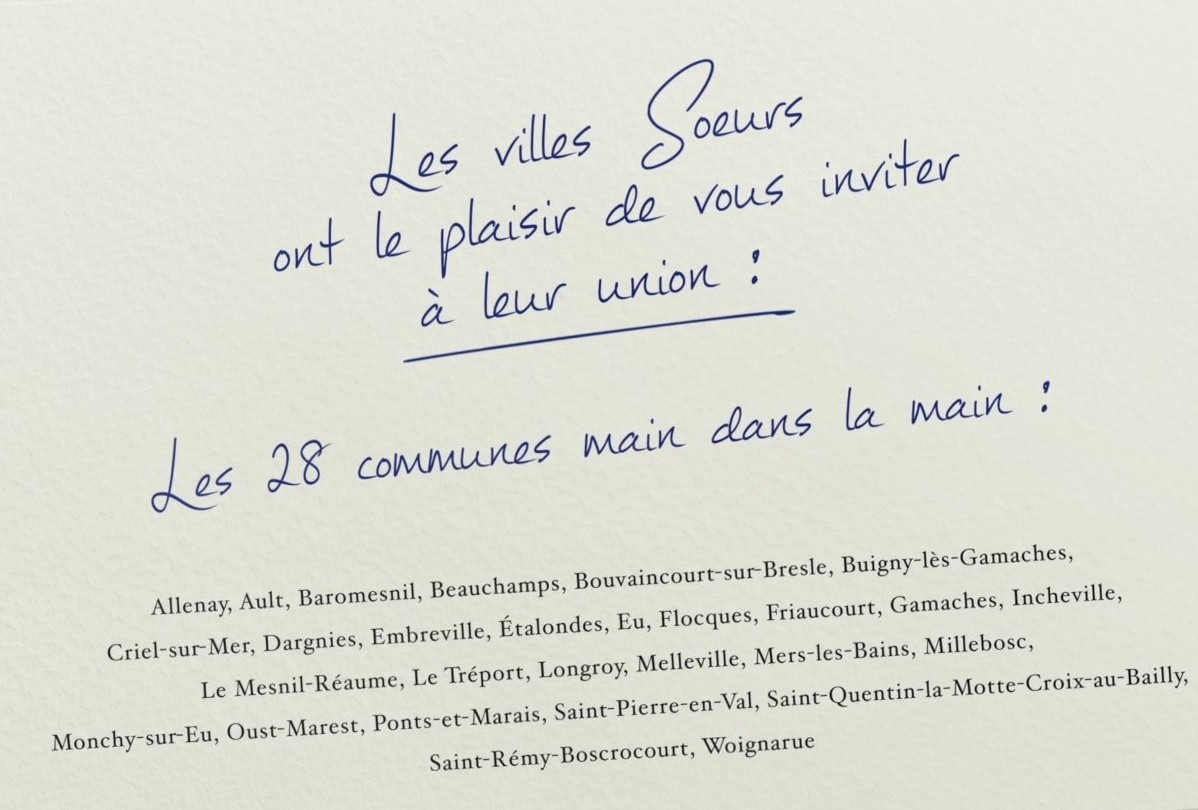 Les villes Soeurs
ont le plaisir de vous inviter
à leur union :
Les 28 communes main dans la main :
Allenay, Ault, Baromesnil, Beauchamps, Bouvaincourt-sur-Bresle, Buigny-lès-Gamaches,
Criel-sur-Mer, Dargnies, Embreville, Étalondes, Eu, Flocques, Friaucourt, Gamaches, Incheville,
Le Mesnil-Réaume, Le Tréport, Longroy, Melleville, Mers-les-Bains, Millebosc,
Monchy-sur-Eu, Oust-Marest, Ponts-et-Marais, Saint-Pierre-en-Val, Saint-Quentin-la-Motte-Croix-au-Bailly,
Saint-Rémy-Boscrocourt, Woignarue